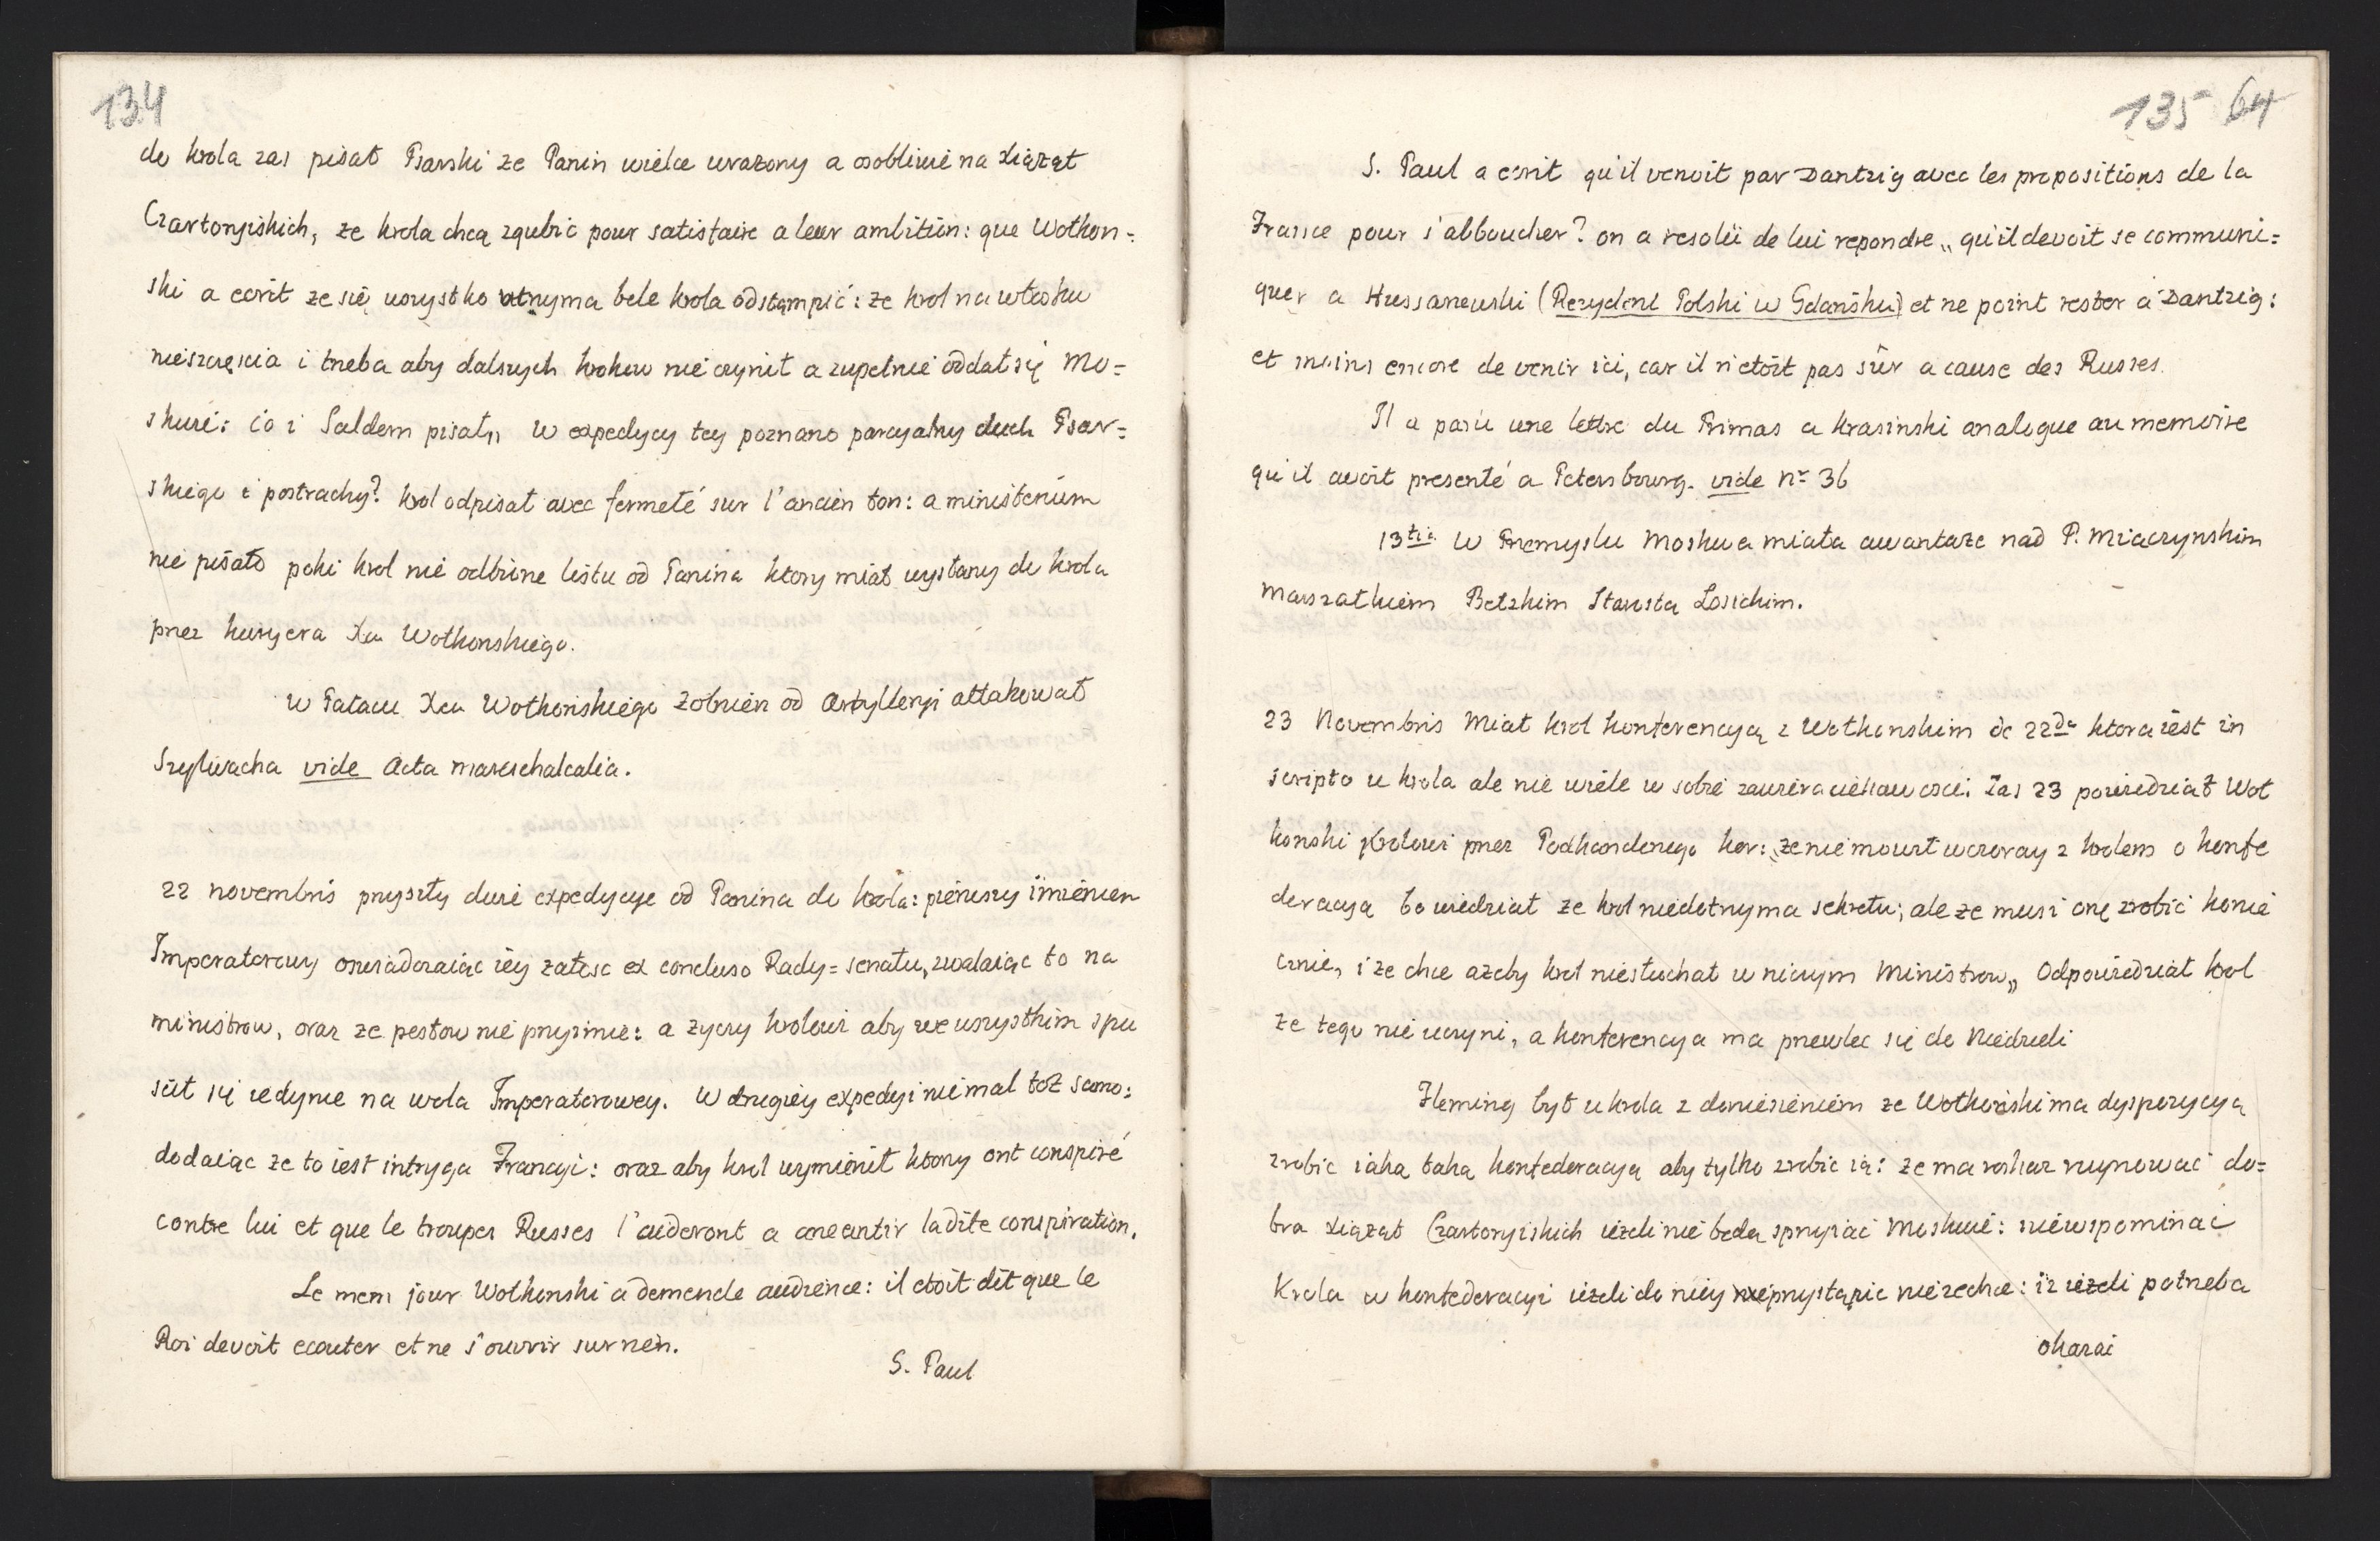 134
do krola zas pisał Psarski ze Panin wielce urazony a osobliwie na xiąząt
Czartoryiskich, ze krola chcą zgubic pour satisfaire a leur ambition: que Wołkon=
ski a ecrit ze się wszystko utrzyma bele krola odstąmpić: ze krol na włosku
nieszczęscia i trzeba aby dalszych krokow nie czynił a zupełnie oddał się Mo=
skwie: co i Saldern pisał„ W expedycy tey poznano parcyalny duch Psar=
skiego i postrachy? krol odpisał avec fermeté sur l'ancien ton: a ministerium
nie pisało poki krol nie odbirze listu od Panina ktory miał wysłany do krola
przez kuryera Xcia Wołkonskiego.
W Pałacu Xcia Wołkonskiego Zołnierz od Artylleryi attakował
Szylwacha vide Acta mareschalcalia.
22 novembris przyszły dwie expedycye od Panina do krola: pierwszy imieniem
Imperatorowy oswiadczaiąc iey załosc ex concluso Rady=senatu, zwalaiąc to na
ministrow, oraz ze posłow nie przyimie: a zyczy krolowi aby we wszystkim spu
scił się iedynie na wola Imperatorowey. W drugiey expedyi niemal toż samo:
dodaiąc ze to iest intryga Francyi: oraz aby krol wymienił ktorzy ont conspiré
contre lui et que le troupes Russes l'aideront a aneantir ladite conspiration.
Le mem jour Wołkonski a demende audience: il etoit dit que le
Roi devoit ecouter et ne s'ouvrir sur rien.
S. Paul
135 64
S. Paul a ecrit qu'il venoit par Dantzig avec les propositions de la
France pour s'abboucher? on a resolü de lui repondre „qu'il devoit se communi=
quer a Hussarzewski (Rezydent Polski w Gdańsku) et ne point rester a Dantzig:
et moins encore de venir ici, car il n'etoit pas sûr a cause des Russes.
Il a parü une lettre du Primas a Krasinski analogue au memoire
qu'il avoit presenté a Petersbourg. vide nr 36
13tia W Przemyslu Moskwa miała awantaze nad P. Miaczynskim
Marszałkiem Bełzkim Starostą Łosickim.
23 Novembris Miał krol konferencyą z Wołkonskim de 22da ktora iest in
scripto u krola ale nie wiele w sobie zawiera ciekawosci. Zas 23 powiedział Woł
konski Krolowi przez Podkomorzego kor: „ze nie mowił wczoray z krolem o konfe
deracyą bo wiedział ze krol niedotrzyma sekretu; ale ze musi onę zrobić konie
cznie, i ze chce azeby krol niesłuchał w niczym Ministrow„ Odpowiedział krol
ze tego nie uczyni, a konferencya ma przewlec się do Niedzieli
Fleming był u krola z doniesieniem ze Wołkonski ma dyspozycyą
zrobic iaką taką konfederacyą aby tylko zrobic ią: ze ma roskaz ruynować do=
bra xiąząt Czartoryiskich iezeli nie będą sprzyiać Moskwie: niewspominać
Krola w konfederacyi iezeli do niey przystąpic nie zechce: iz iezeli potrzeba
okaze